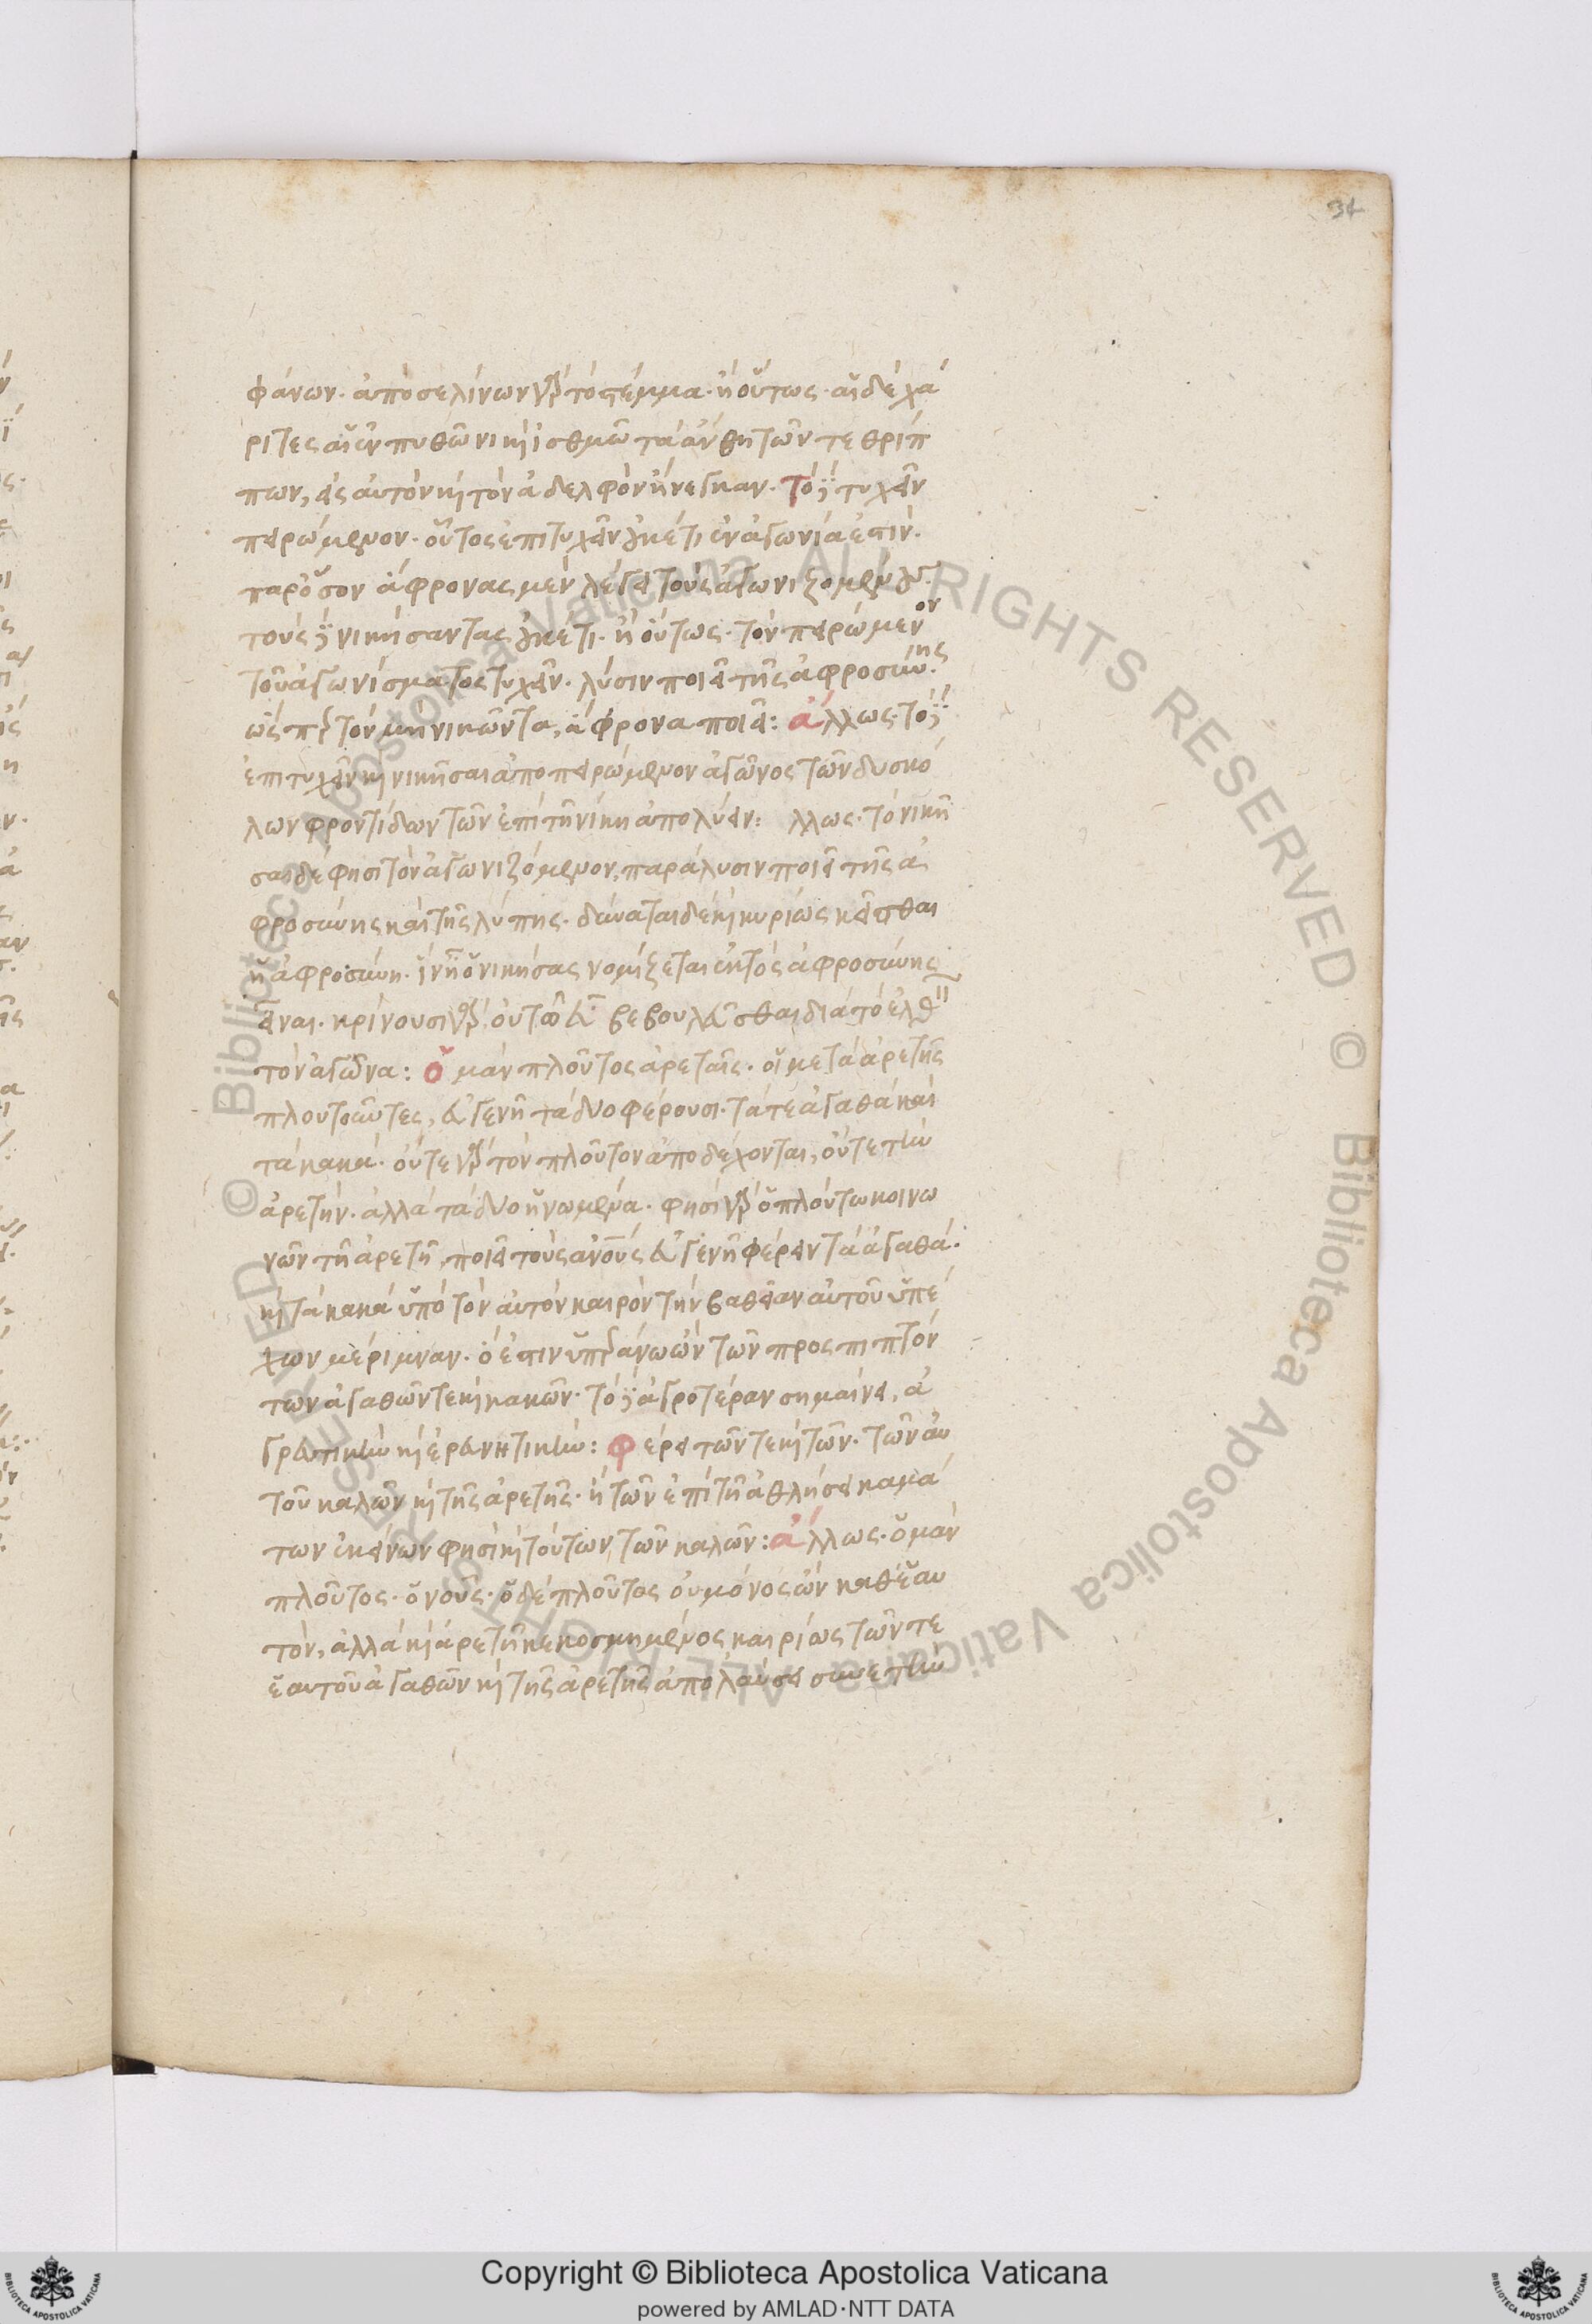 34
φάνων· ἀπὸ σελίνων γὰρ τὸ στέμμα· ἢ οὕτως· αἱ δὲ χά
ριτες αἱ ἐν πυθῶνι καὶ ἰσθμῶ τὰ ἄνθη τῶν τεθρίπ
πων, εἰς αὐτὸν καὶ τὸν ἀδελφὸν ἤνεγκαν· Τὸ δὲ τυχεῖν
πειρώμενον· οὗτος ἐπιτυχεῖν οὐκέτι ἐν ἀγωνία ἐστίν·
παρόσον ἄφρονας μὲν λέγει τοὺς ἀγωνιζομένους·
τοὺς δὲ νικήσαντας οὐκέτι· ἢ οὕτως· τὸν πειρώμενον
τοῦ ἀγωνίσματος τυχεῖν· λύσιν ποιεῖ τῆς ἀφροσύνης·
ὥσπερ τὸν μὴ νικῶντα, ἄφρονα ποιεῖ: ἄλλως· τὸ δὲ
ἐπιτυχεῖν καὶ νικῆσαι ἀποπειρώμενον ἀγῶνος τῶν δυσκό
λων φροντίδων τῶν ἐπὶ τῆ νίκη ἀπολύειν: λλως· τὸ νικῆ
σαι δέ φησι τὸν ἀγωνιζόμενον, παράλυσιν ποιεῖ τῆς ἀ
φροσύνης καὶ τῆς λύπης· δύναται δὲ καὶ κυρίως κεῖσθαι
ἡ ἀφροσύνη· ἵν᾽ ἦ ὁ νικήσας νομίζεται ἐκτὸς ἀφροσύνης
εἶναι· κρίνουσι γὰρ οὕτω εὖ βεβουλεῦσθαι διὰ τὸ ἐλθεῖν
τὸν ἀγῶνα: ὁ μὰν πλοῦτος ἀρεταῖς· οἱ μετὰ ἀρετῆς
πλουτοῦντες, εὐγενῆ τὰ δύο φέρουσι· τά τε ἀγαθὰ καὶ
τὰ κακά· οὔτε γὰρ τὸν πλοῦτον ἀποδέχονται, οὔτε τὴν
ἀρετήν· ἀλλὰ τὰ δύο ἡνωμένα· φησὶ γὰρ ὁ πλούτω κοινω
νῶν τῆ ἀρετῆ, ποιεῖ τοὺς ἀνους εὐγενῆ φέρειν τὰ ἀγαθά·
καὶ τὰ κακὰ ὑπὸ τὸν αὐτὸν καιρὸν τὴν βαθεῖαν αὐτοῦ ὑπέ
χων μέριμναν· ὅ ἐστιν ὑπεράνω ὢν τῶν προσπιπτόν
των ἀγαθῶν τε καὶ κακῶν· τὸ δὲ ἀγροτέραν σημαίνει, ἀ
γρευτικὴν καὶ ἐρευνητικήν: φέρει τῶν τε καὶ τῶν· τῶν αὐ
τοῦ καλῶν καὶ τῆς ἀρετῆς· ἢ τῶν ἐπὶ τῆ ἀθλήσει καμά
των ἐκείνων φησὶ καὶ τούτων τῶν καλῶν: ἄλλως· ὁ μὰν
πλοῦτος· ὁ νοῦς· ὁ δὲ πλοῦτος οὐ μόνος ὢν καθ᾽ ἑαυ
τόν, ἀλλὰ καὶ ἀρετῆ κεκοσμημένος καιρίως τῶν τε
ἑαυτοῦ ἀγαθῶν καὶ τῆς ἀρετῆς ἀπολαύσει συνετὴν
© Biblioteca Apostolica Vaticana ALL RIGHTS RESERVED © Biblioteca Apostolica Vaticana ALL RIGHTS RESERVED
Copyright © Biblioteca Apostolica Vaticana
powered by AMLAD·NTT DATA
BIBLIOTECA APOSTOLICA VATICANA
BIBLIOTECA APOSTOLICA VATICANA